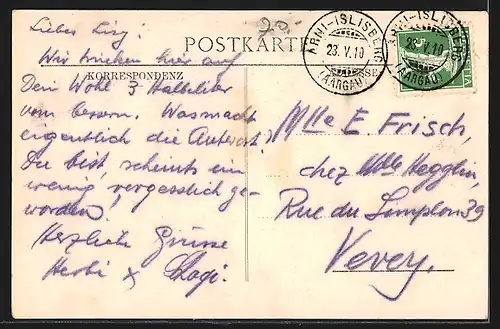 Liebes Lisy!
Wir trinken hier auf
Dein Wohl 3 Halbliter
vom bessern. Was macht
eigentlich die Antwort?
Du bist, scheints ein
wenig vergesslich ge-
worden!
Herzliche Grüsse
Herbi x
POSTKARTE
KORRESPONDENZ
ARNI-ISLISBERG
23.V.10
(AARGAU)
ARNI-ISLISBERG
23.V.10
(AARGAU)
5
Mlle E Frisch,
chez Mlle Hegglin,
Rue du Simplon 39
Vevey.